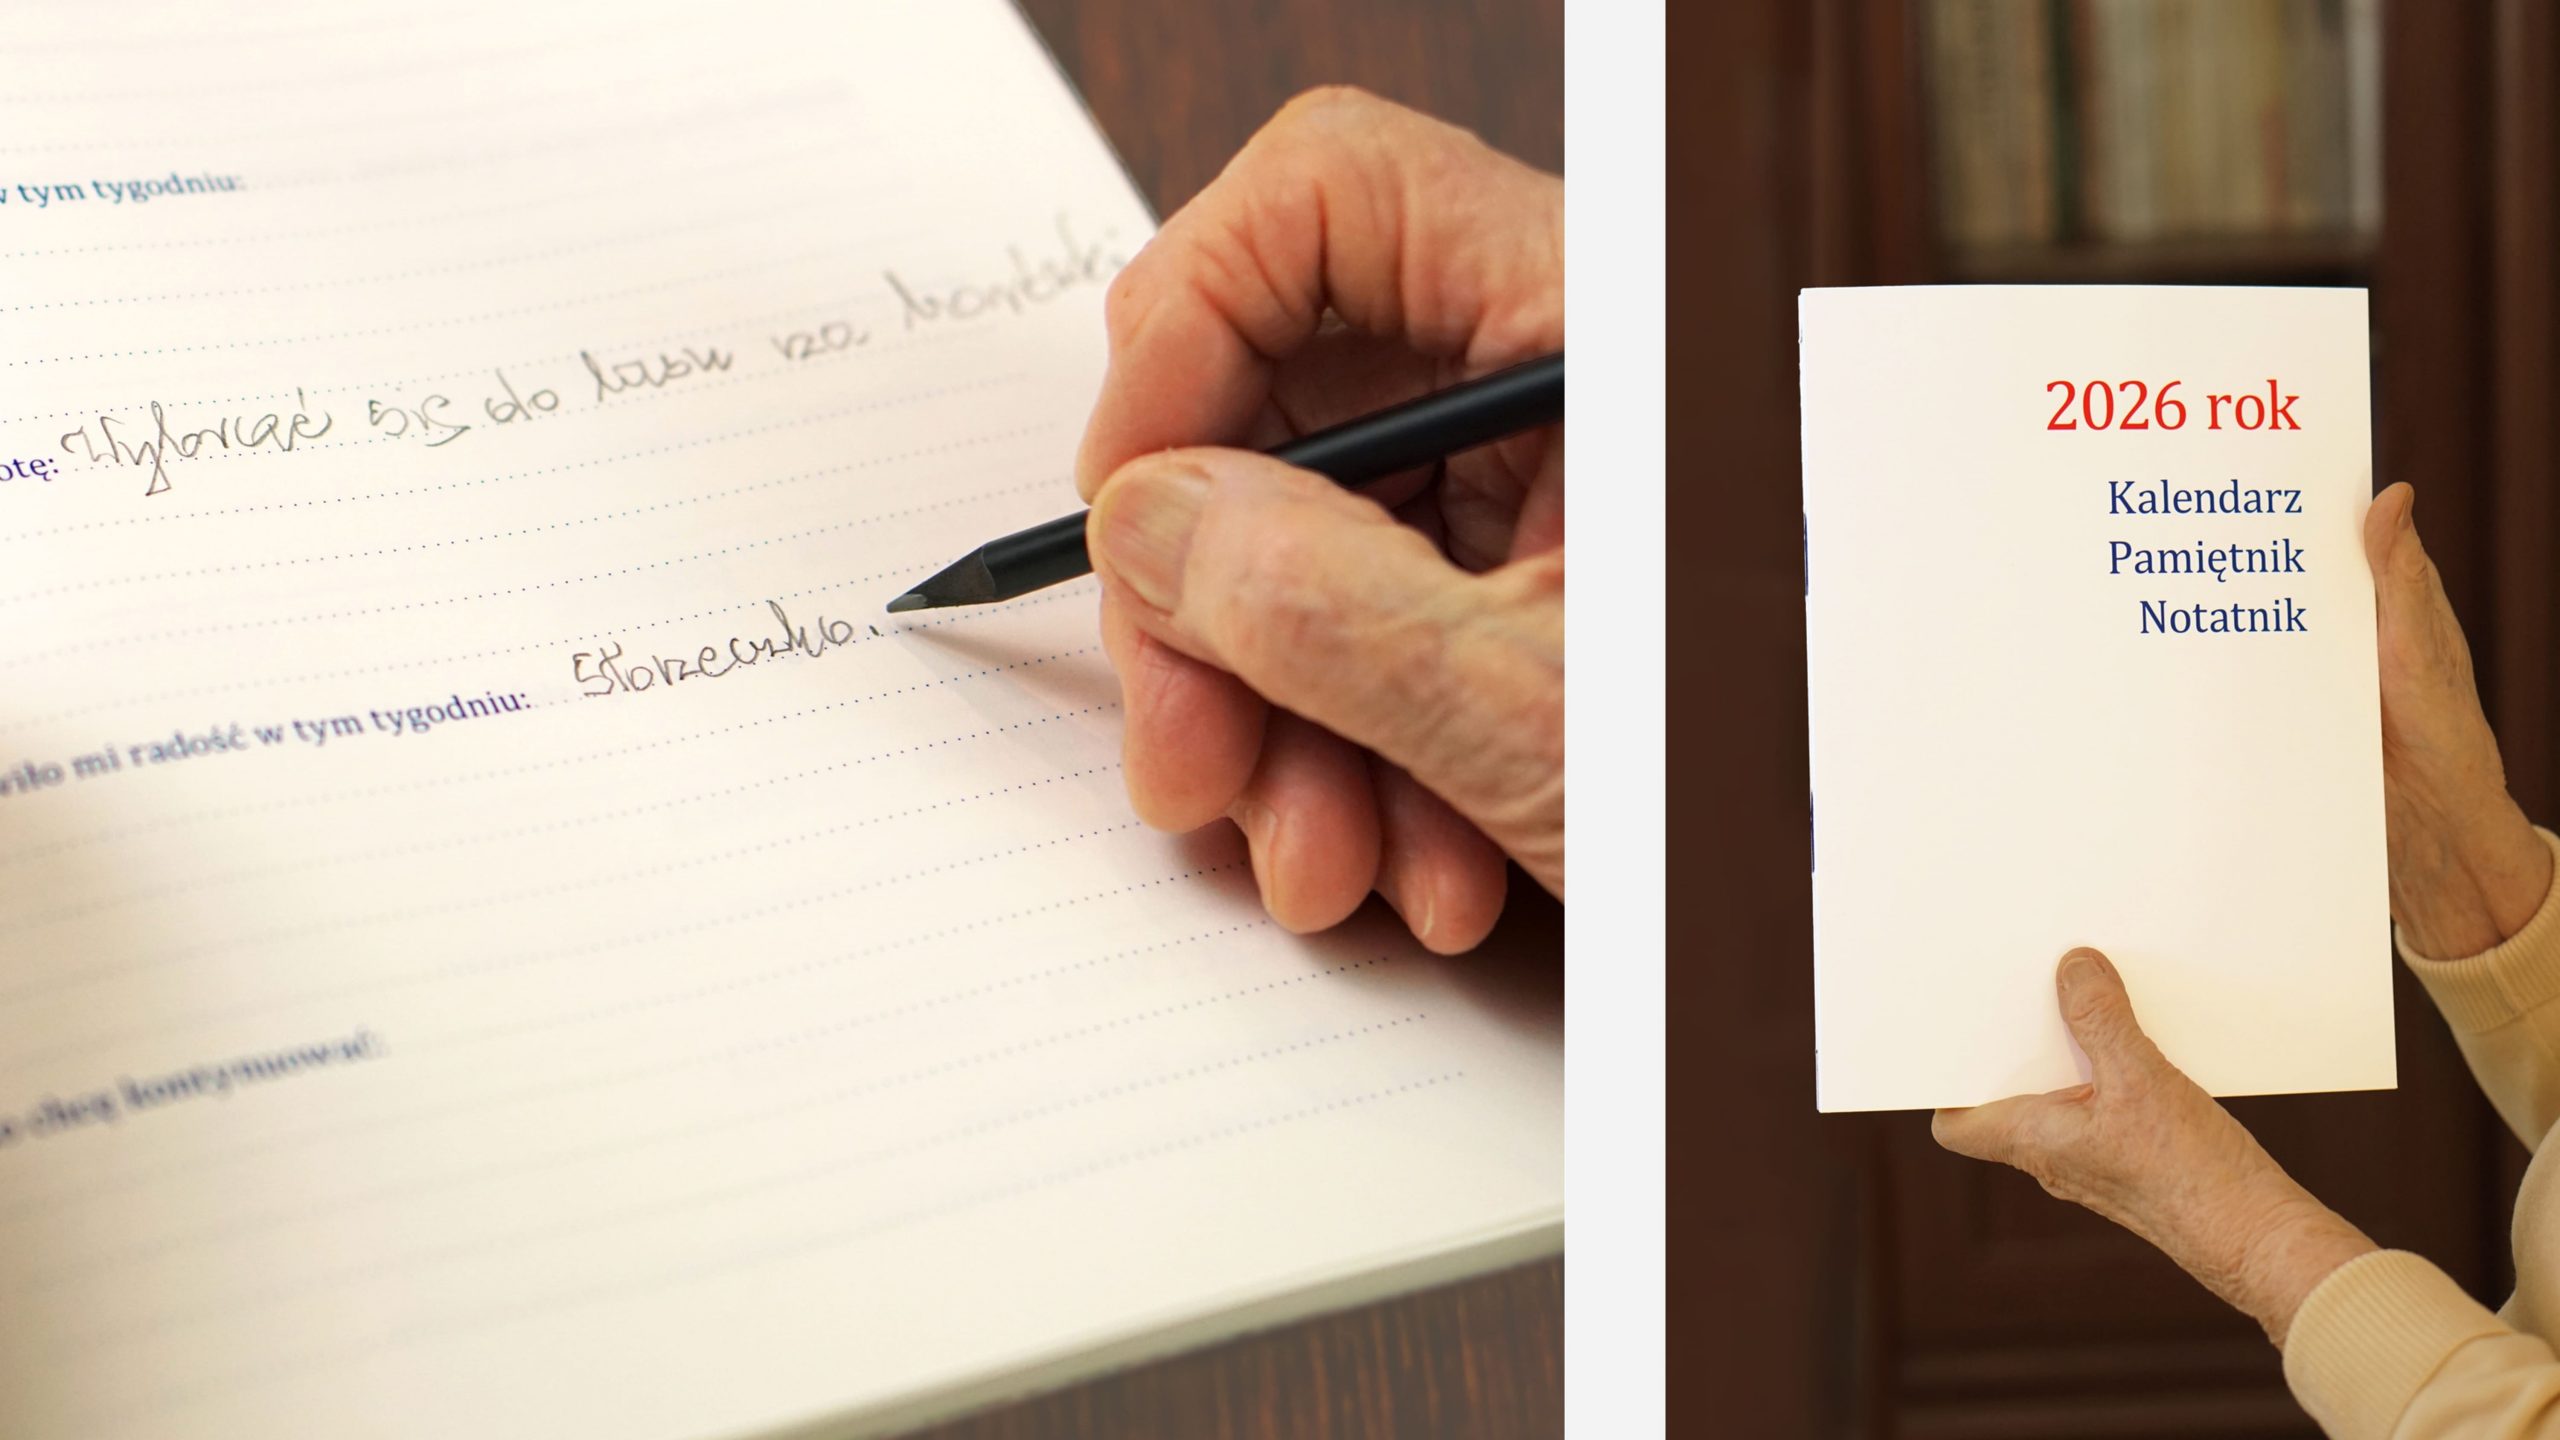 w tym tygodniu:
otę: Wybrać się do lasu na
wiło mi radość w tym tygodniu: Słoneczko.
chcę kontynuować:
2026 rok
Kalendarz
Pamiętnik
Notatnik